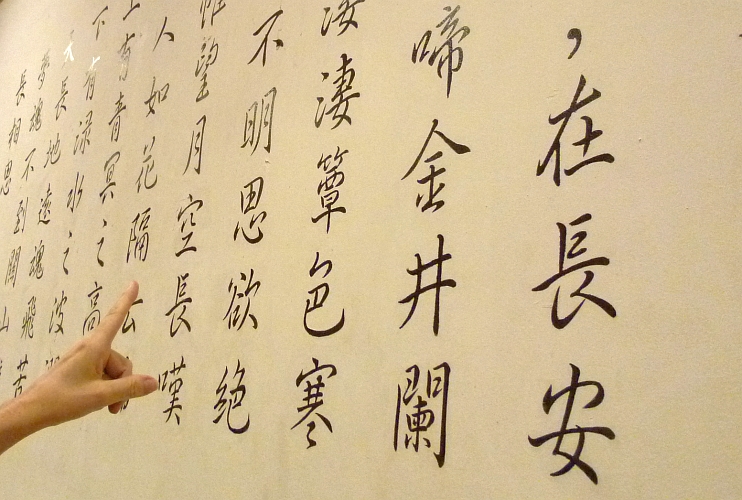 ，在長安
啼金井闌
淒淒簟色寒
不明思欲絕
帷望月空長嘆
人如花隔
上有青冥之高
下有淥水之波
天長地遠魂飛苦
夢魂不到關山
長相思